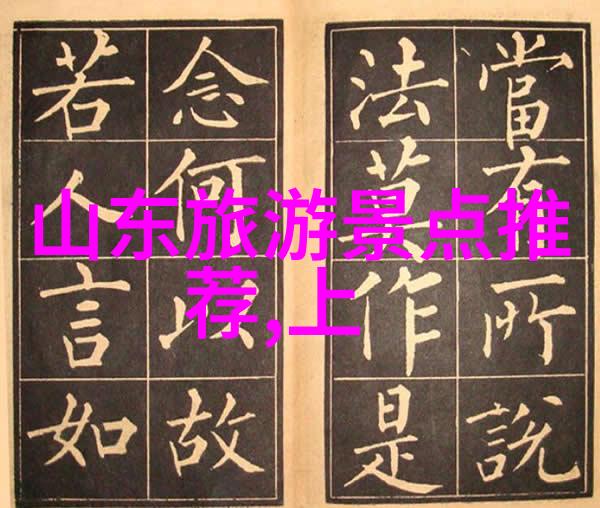 山东旅游景点推
荐,上
當有所說
法莫作是
念何以故
若人言如